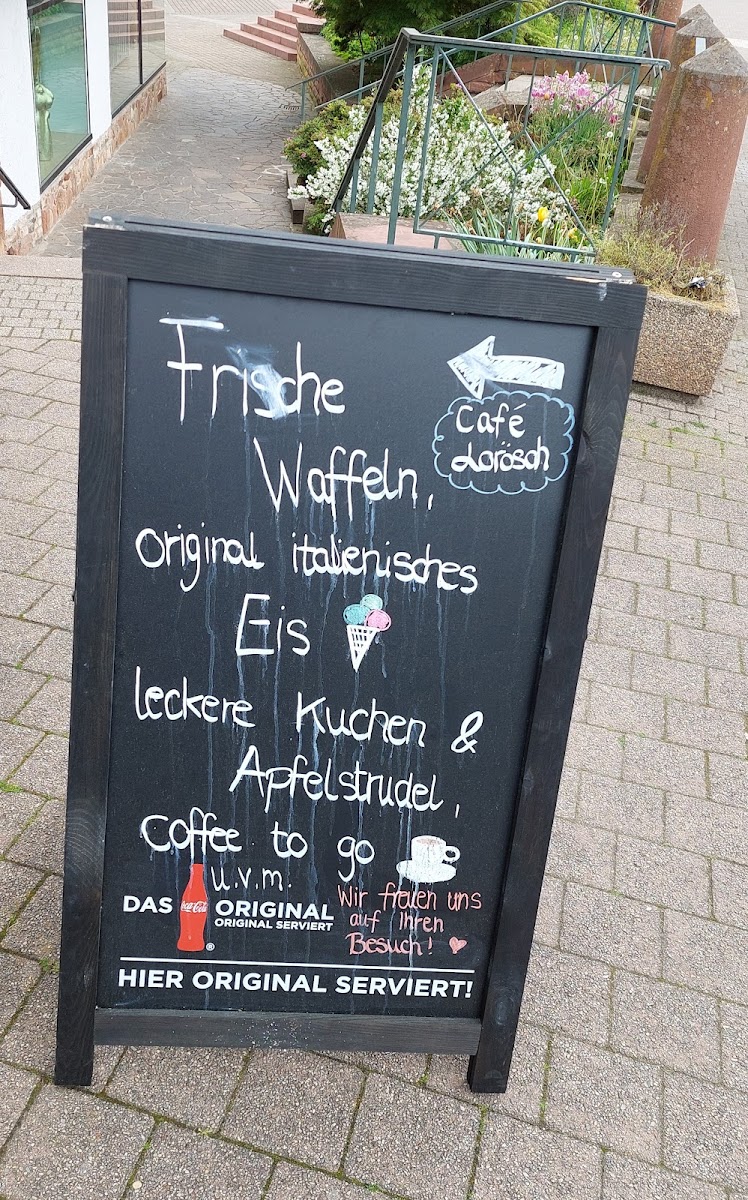 Frische
Waffeln,
Café
Lorösch
original italienisches
Eis
leckere Kuchen &
Apfelstrudel,
coffee to go
u.v.m.
DAS Coca-Cola ORIGINAL
ORIGINAL SERVIERT
®
Wir freuen uns
auf Ihren
Besuch!
HIER ORIGINAL SERVIERT!